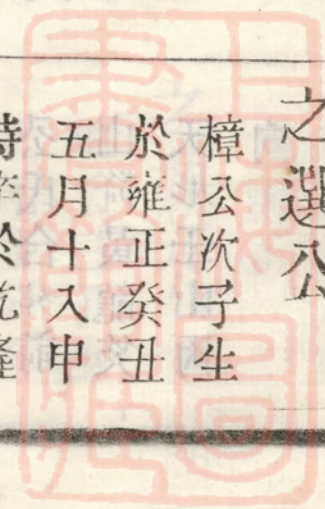 之選公
樟公次子生
於雍正癸丑
五月十入申
時卒於乾隆